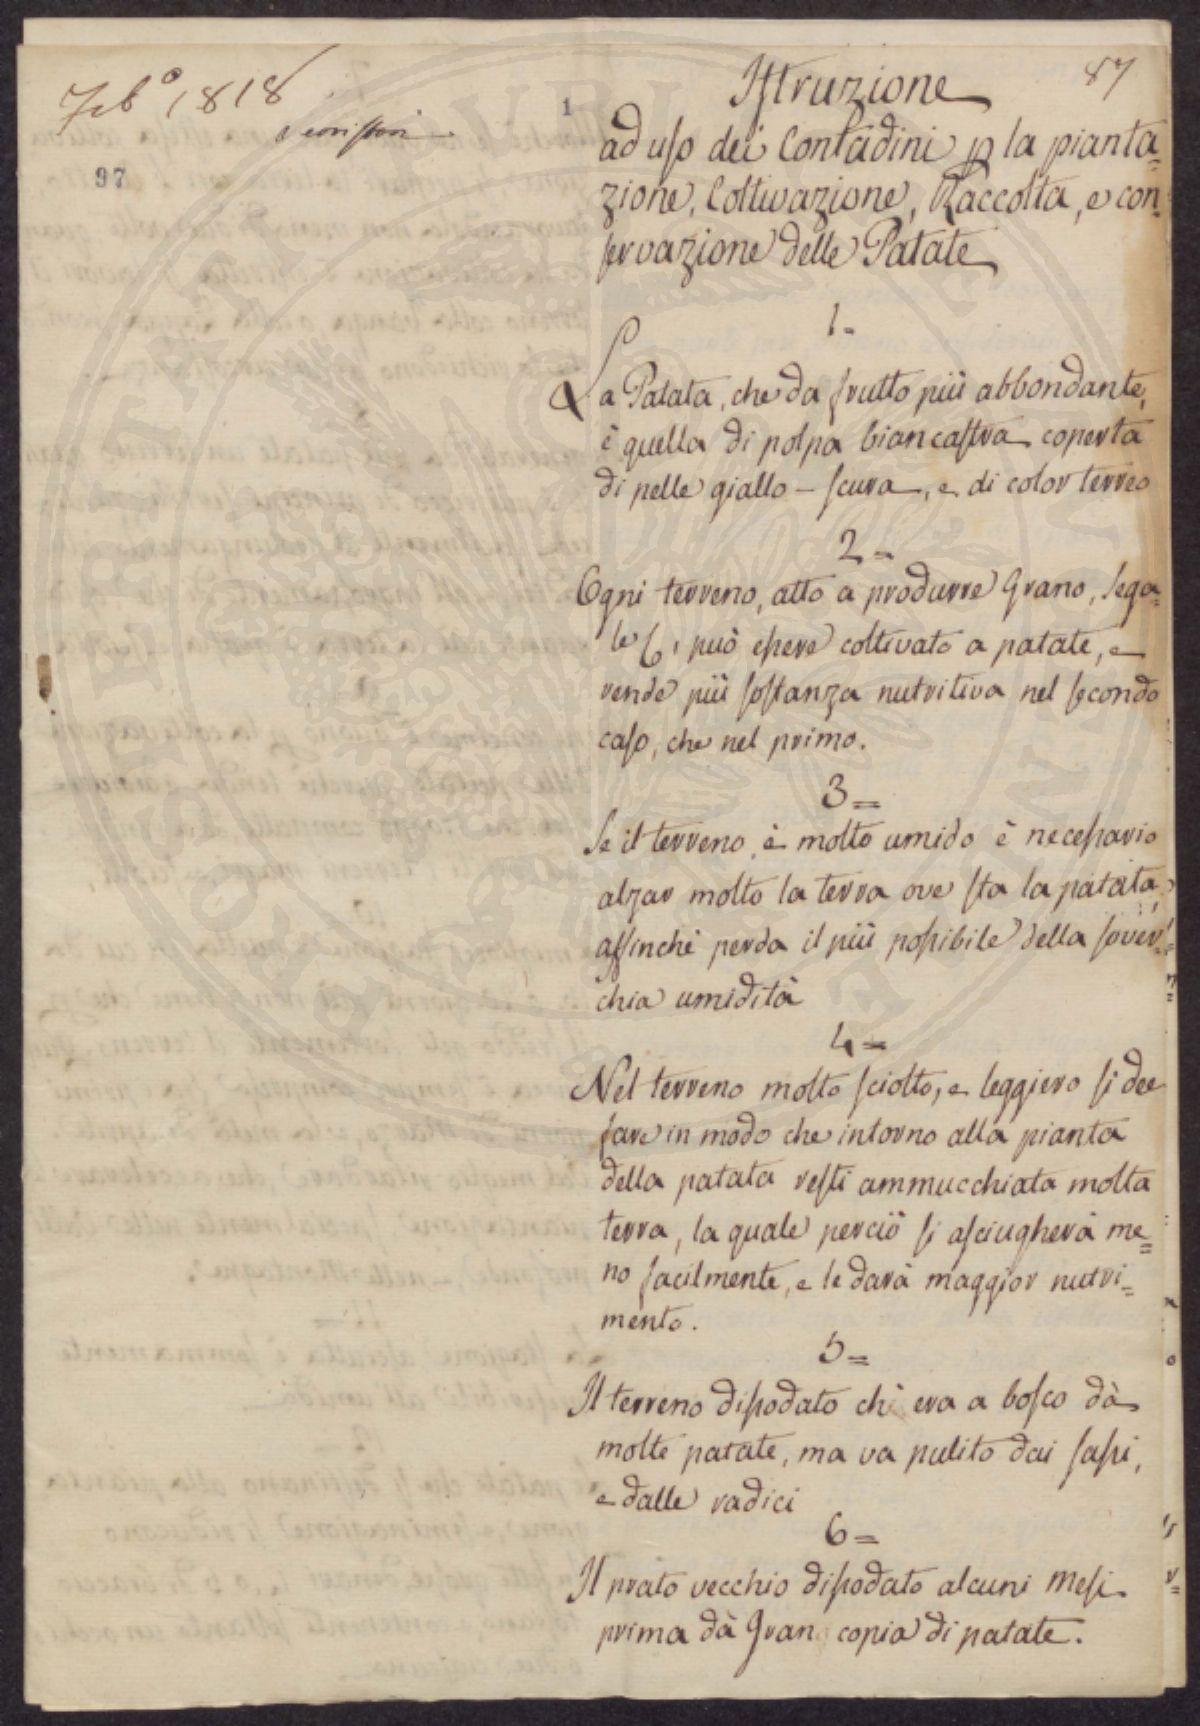 Feb.º 1818
97
1
87
Istruzione
ad uso dei Contadini p la pianta=
zione, Coltivazione, Raccolta, e con=
servazione delle Patate
1=
La Patata, che da frutto più abbondante,
è quella di polpa biancastra coperta
di pelle giallo - scura, e di color terreo
2=
Ogni terreno, atto a produrre Grano, Sega=
le &, può essere coltivato a patate, e
rende più sostanza nutritiva nel secondo
caso, che nel primo.
3=
Se il terreno è molto umido è necessario
alzar molto la terra ove sta la patata,
affinchè perda il più possibile della sover=
chia umidità
4=
Nel terreno molto sciolto, e leggiero si dee
fare in modo che intorno alla pianta
della patata resti ammucchiata molta
terra, la quale perciò si asciugherà me=
no facilmente, e le darà maggior nutri=
mento.
5=
Il terreno dissodato ch' era a bosco dà
molte patate, ma va pulito dai sassi,
e dalle radici
6=
Il prato vecchio dissodato alcuni mesi
prima dà Gran copia di patate.